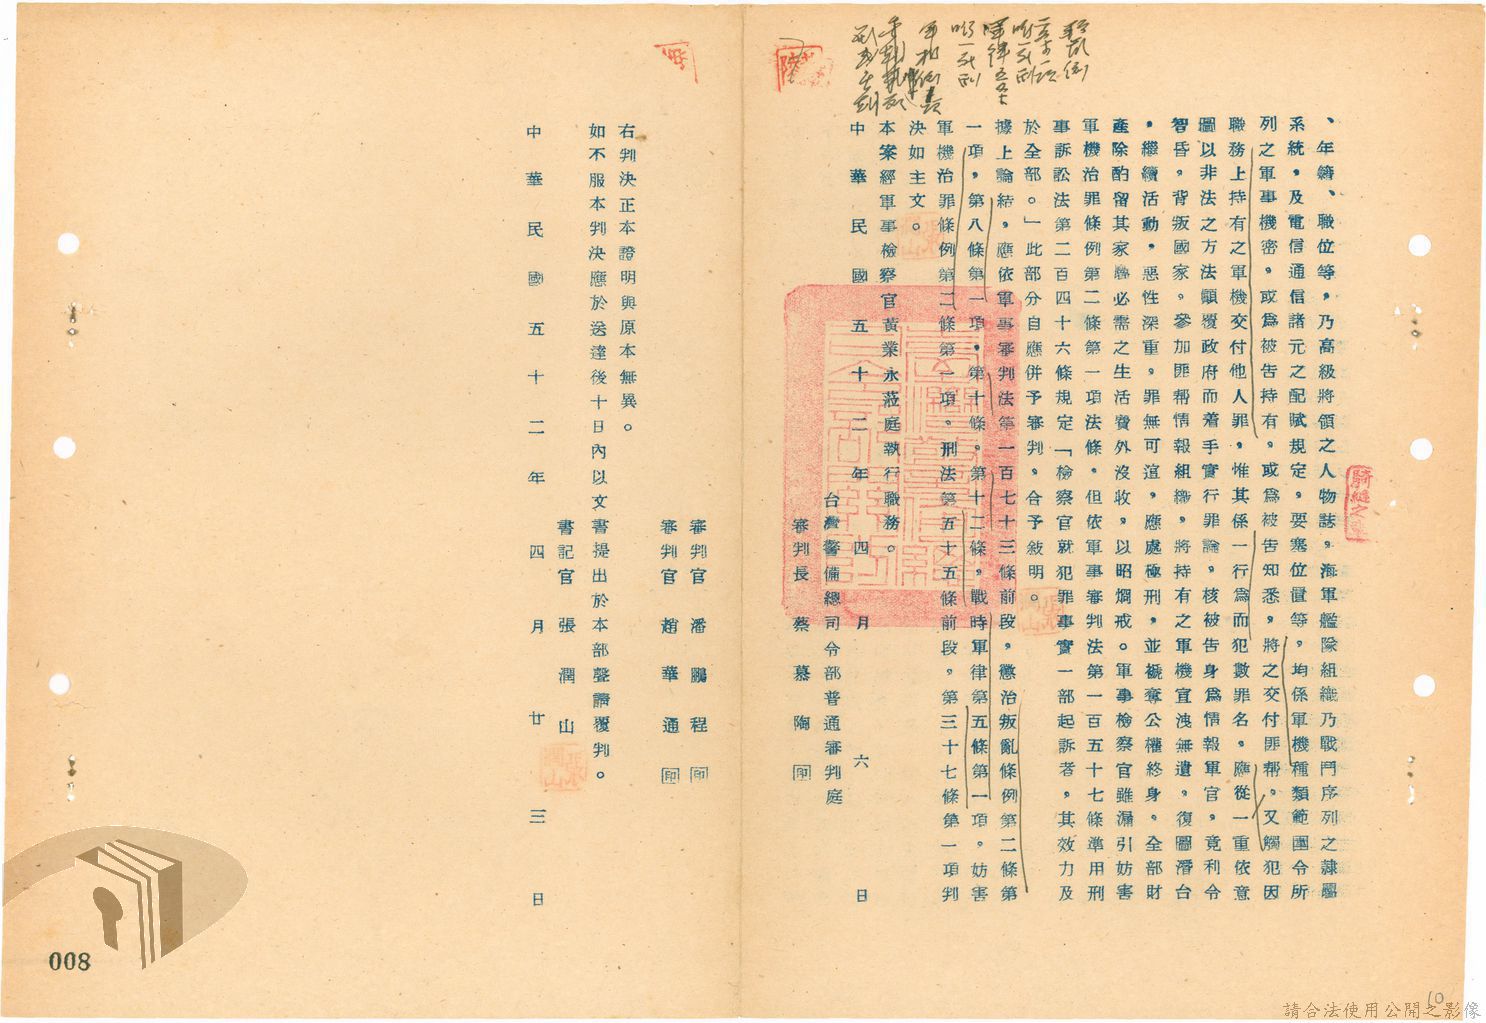 、年籍、職位等，乃高級將領之人物誌。海軍艦隊組織乃戰鬥序列之隸屬
系統，及電信通信諸元之配賦規定，要塞位置等，均係軍機種類範圍令所
列之軍事機密，或為被告持有，或為被告知悉，將之交付匪幫。又觸犯因
職務上持有之軍機交付他人罪，惟其係一行為而犯數罪名，應從一重依意
圖以非法之方法顛覆政府而着手實行罪論。核被告身為情報軍官，竟利令
智昏，背叛國家。參加匪幫情報組織，將持有之軍機宜洩無遺。復圖潛台
，繼續活動，惡性深重，罪無可逭，應處極刑，並褫奪公權終身。全部財
產除酌留其家屬必需之生活費外沒收，以昭烱戒。軍事檢察官雖漏引妨害
軍機治罪條例第二條第一項法條，但依軍事審判法第一百五十七條準用刑
事訴訟法第二百四十六條規定「檢察官就犯罪事實一部起訴者，其效力及
於全部。」此部分自應併予審判，合予敘明。
據上論結，應依軍事審判法第一百七十三條前段，懲治叛亂條例第二條第
一項，第八條第一項，第十條，第十二條，戰時軍律第五條第一項。妨害
軍機治罪條例第二條第一項，刑法第五十五條前段，第三十七條第一項判
決如主文。
本案經軍事檢察官黃業永蒞庭執行職務。
中華民國五十二年四月六日
台灣警備總司令部普通審判庭
審判長 蔡慕陶 印
審判官 潘鵬程 印
審判官 趙華通 印
右判決正本證明與原本無異。
如不服本判決應於送達後十日內以文書提出於本部聲請覆判。
書記官 張潤山
中華民國五十二年四月廿三日
騎縫之章
008
10
請合法使用公開之影像